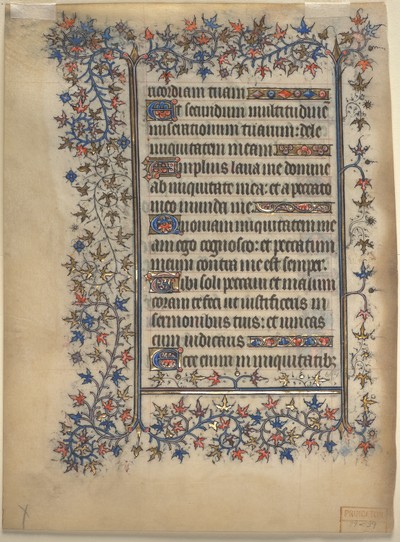 ricordiam tuam
Et secundum multitudinē
miserationum tuarum: dele
iniquitatem meam
Amplius laua me domine
ab iniquitate mea: et a peccato
meo munda me
Quoniam iniquitatem me
am ego cognosco: et peccatum
meum contra me est semper.
Tibi soli peccaui et malum
coram te feci ut iustificeris in
sermonibus tuis: et uincas
cum iudicaris
Ecce enim in iniquitatib;